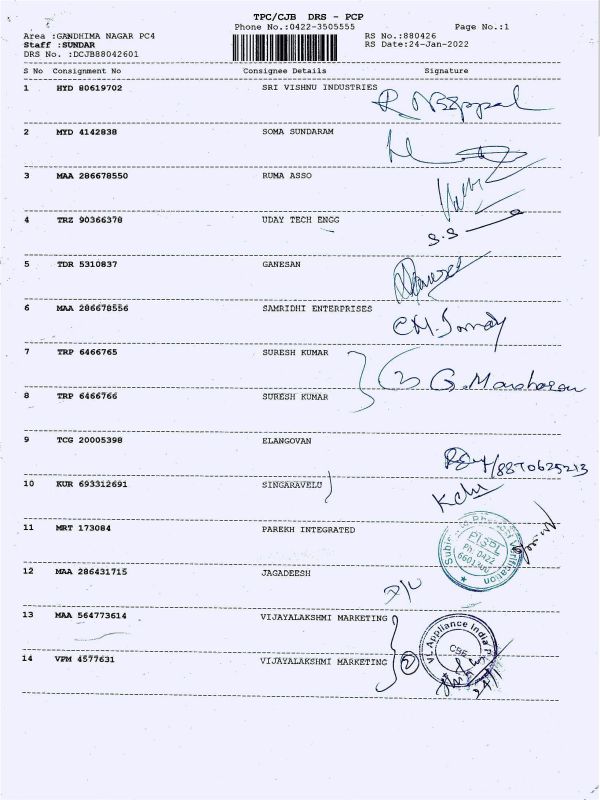 TPC/CJB DRS - PCP
Phone No.:0422-3505555 Page No.:1
Area :GANDHIMA NAGAR PC4 RS No.:880426
Staff :SUNDAR RS Date:24-Jan-2022
DRS No. :DCJB88042601
S No Consignment No Consignee Details Signature
1 HYD 80619702 SRI VISHNU INDUSTRIES
2 MYD 4142838 SOMA SUNDARAM
3 MAA 286678550 RUMA ASSO
4 TRZ 90366378 UDAY TECH ENGG S.S
5 TDR 5310837 GANESAN
6 MAA 286678556 SAMRIDHI ENTERPRISES
7 TRP 6466765 SURESH KUMAR
8 TRP 6466766 SURESH KUMAR
9 TCG 20005398 ELANGOVAN /8870625213
10 KUR 693312691 SINGARAVELU
11 MRT 173084 PAREKH INTEGRATED PISPL Ph. 0422 Verification
12 MAA 286431715 JAGADEESH
13 MAA 564773614 VIJAYALAKSHMI MARKETING VL Appliance India CBE
14 VPM 4577631 VIJAYALAKSHMI MARKETING 2